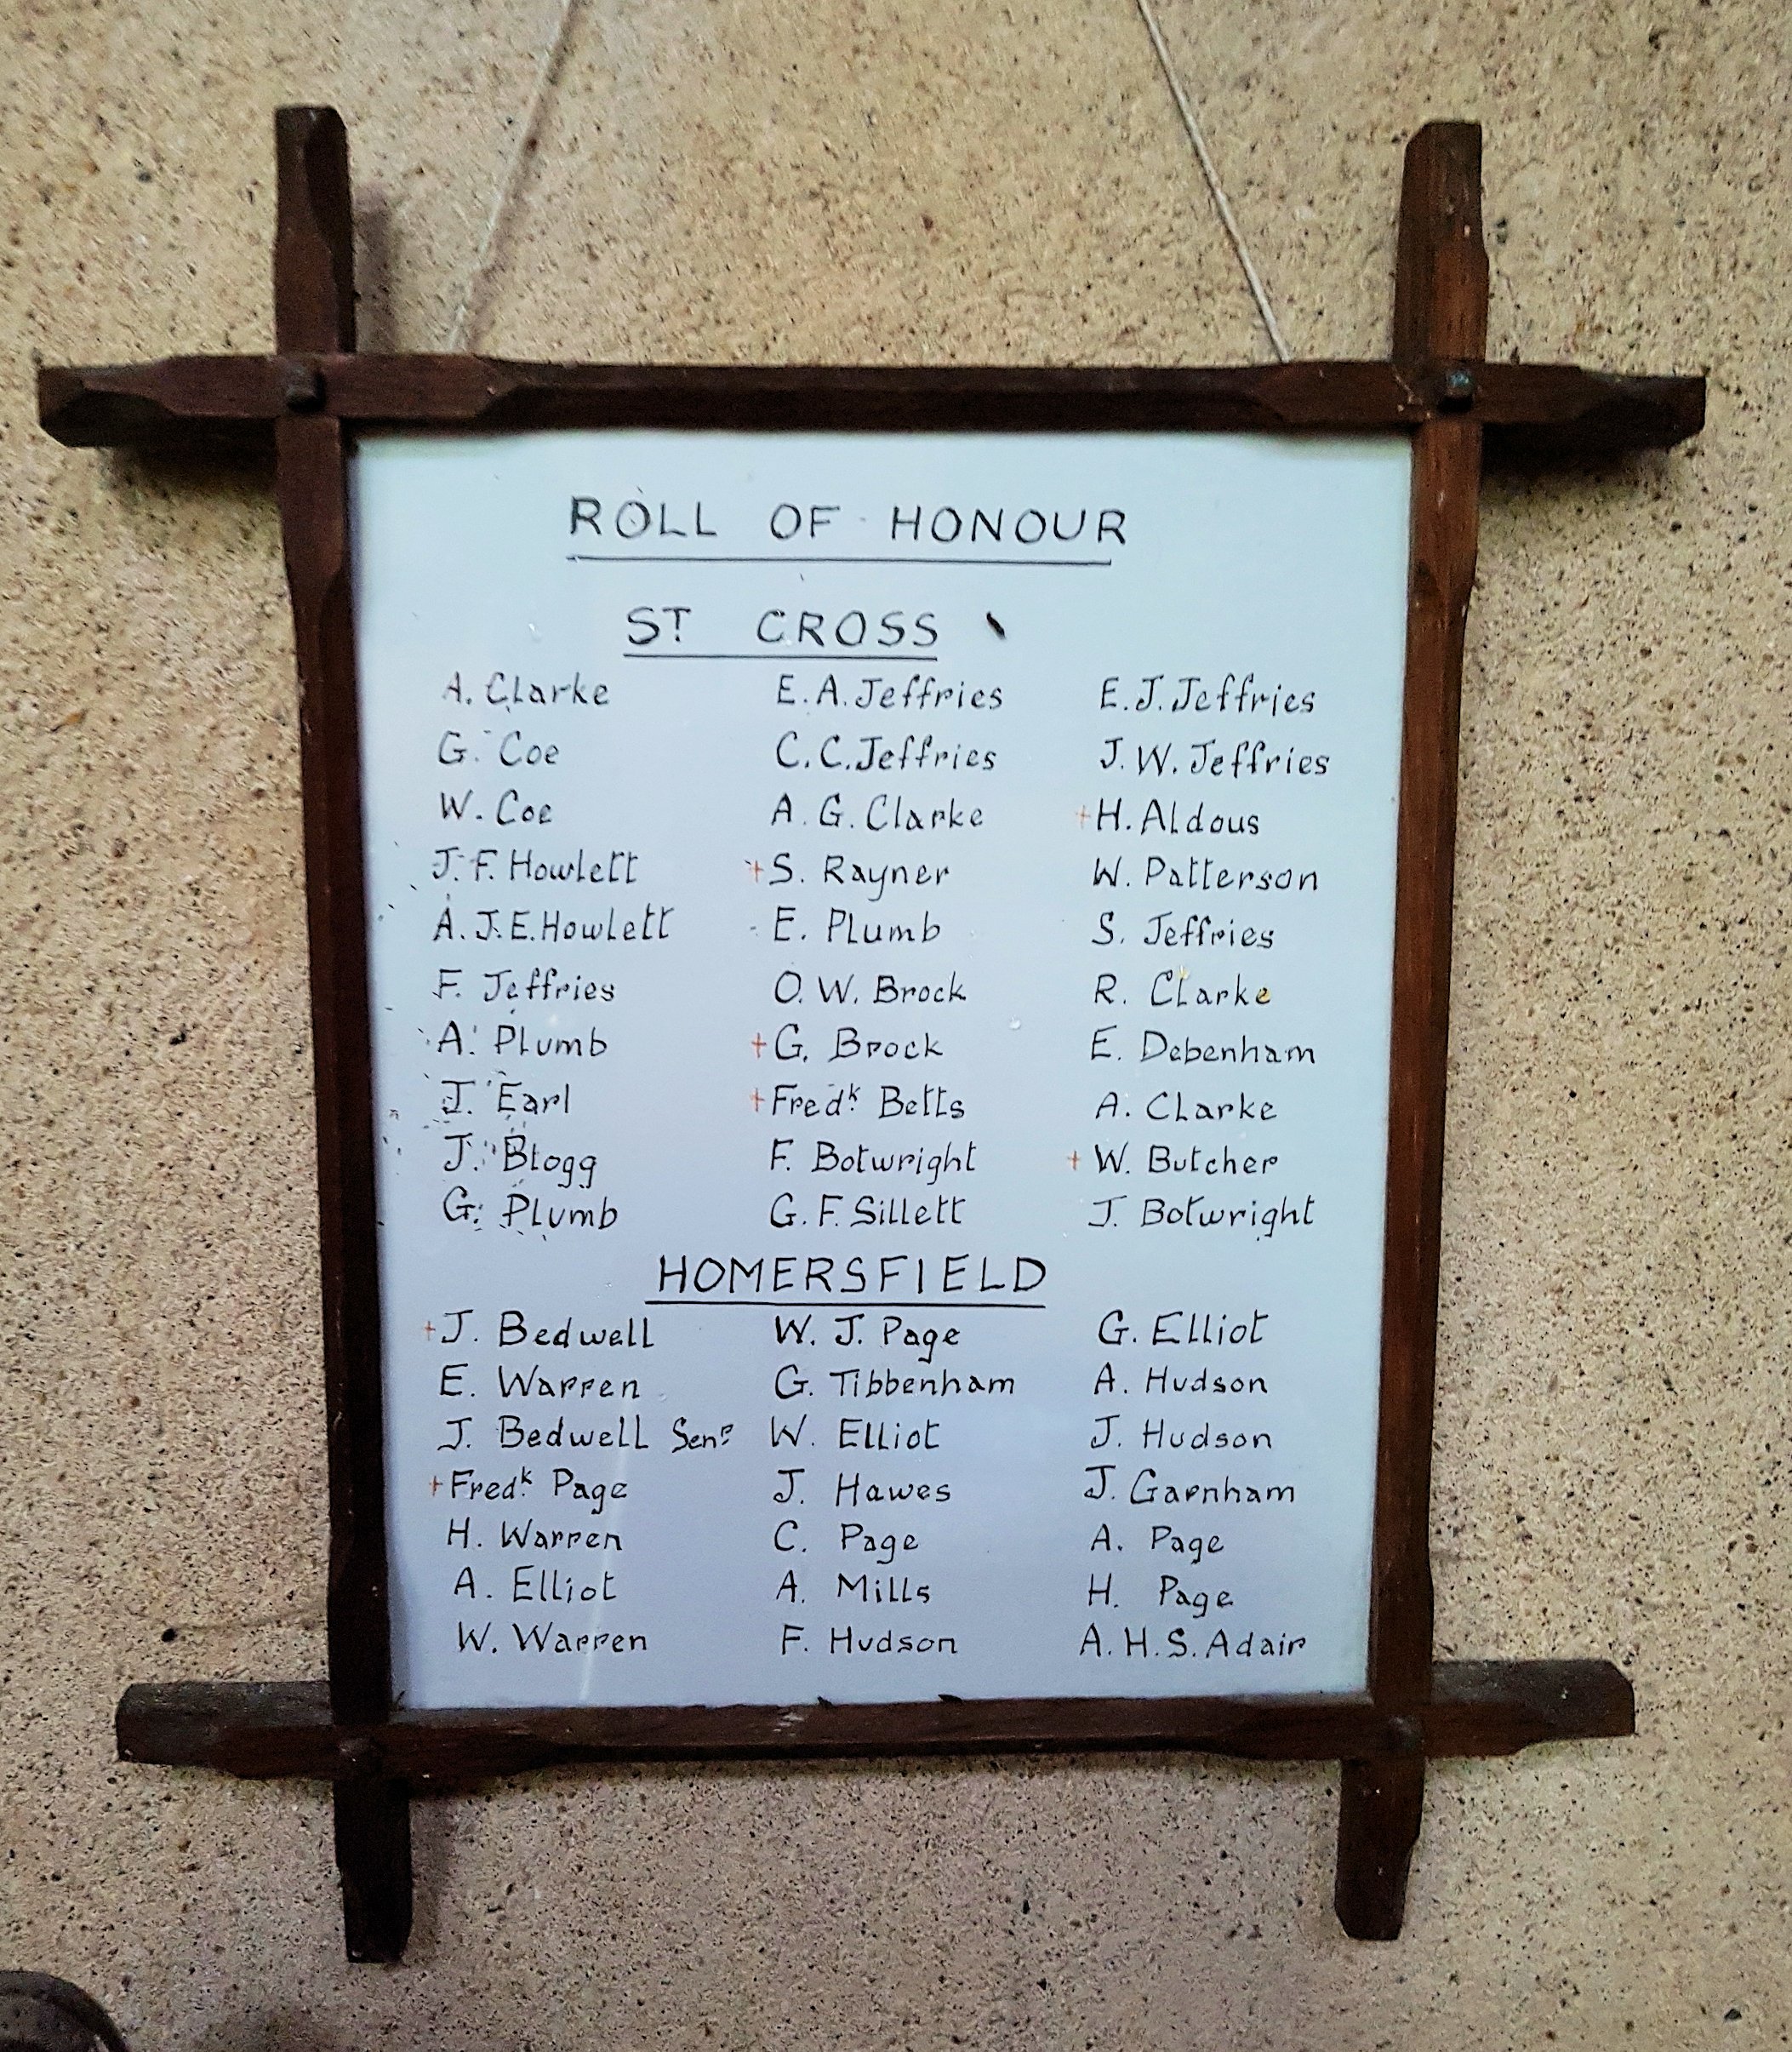 ROLL OF HONOUR
ST CROSS
A. Clarke E. A. Jeffries E. J. Jeffries
G. Coe C. C. Jeffries J. W. Jeffries
W. Coe A. G. Clarke +H. Aldous
J. F. Howlett +S. Rayner W. Patterson
A. J. E. Howlett E. Plumb S. Jeffries
F. Jeffries O. W. Brock R. Clarke
A. Plumb +G. Brock E. Debenham
J. Earl +Fredk. Betts A. Clarke
J. Blogg F. Botwright +W. Butcher
G. Plumb G. F. Sillett J. Botwright
HOMERSFIELD
+J. Bedwell W. J. Page G. Elliot
E. Warren G. Tibbenham A. Hudson
J. Bedwell Senr W. Elliot J. Hudson
+Fredk. Page J. Hawes J. Garnham
H. Warren C. Page A. Page
A. Elliot A. Mills H. Page
W. Warren F. Hudson A. H. S. Adair